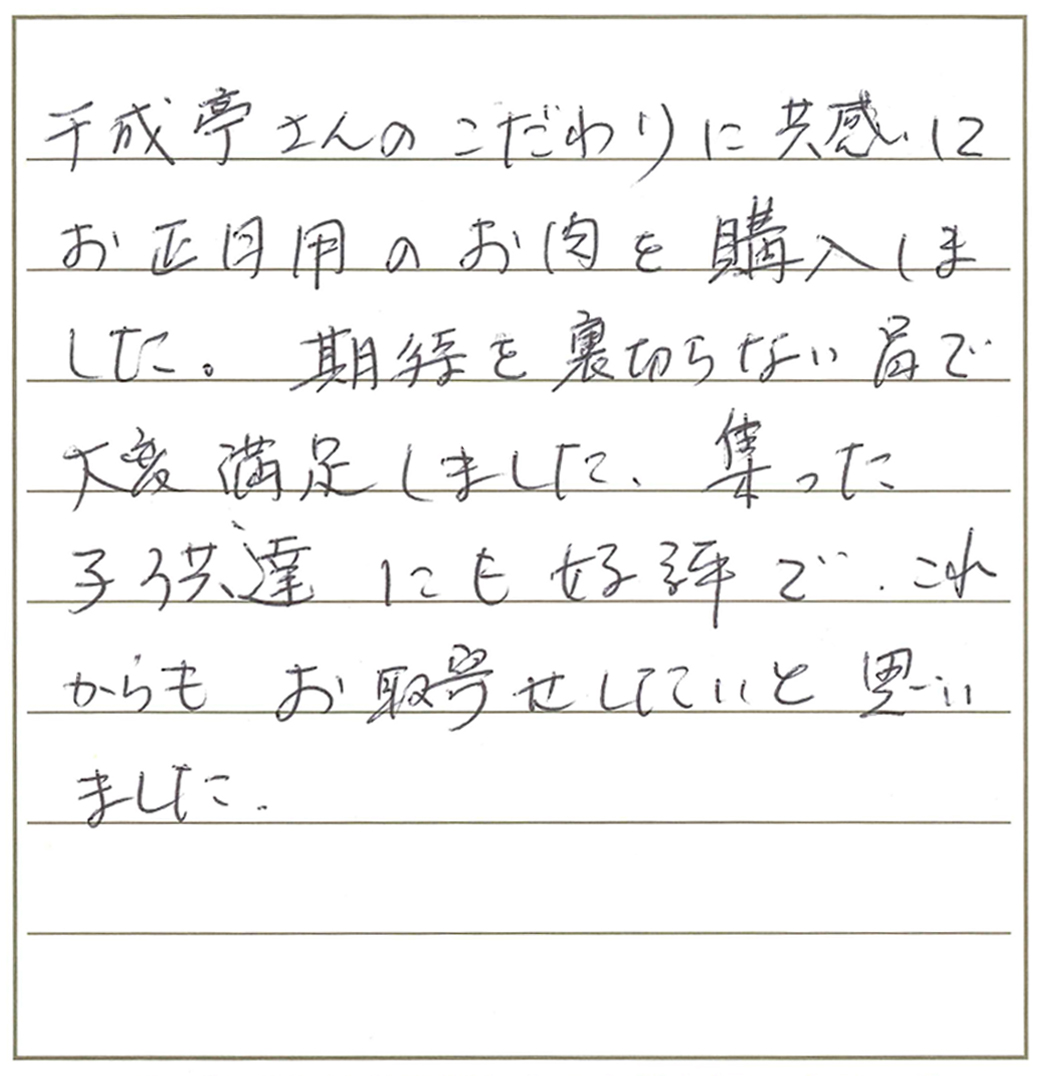 千成亭さんのこだわりに共感して
お正月用のお肉を購入しま
した。期待を裏切らない品で
大変満足しました、集った
子供達にも好評で、これ
からもお取寄せしていいと思い
ました。